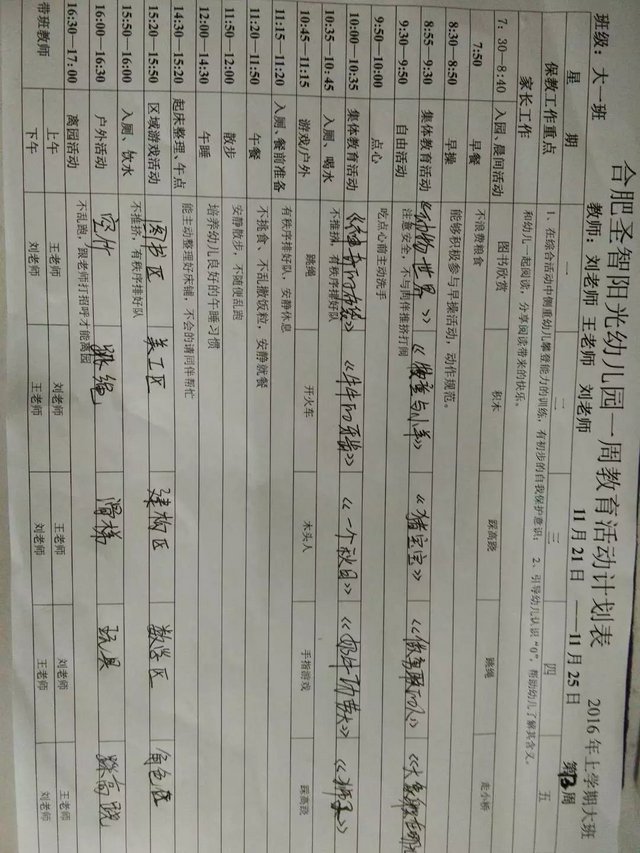 合肥圣智阳光幼儿园一周教育活动计划表
2016年上学期大班
班级：大一班 教师：刘老师 王老师 刘老师 11月21日 ——11月25日 第13周
星 期 一 二 三 四 五
保教工作重点 1、在综合活动中侧重幼儿攀登能力的训练，有初步的自我保护意识； 2、引导幼儿认识“0”，帮助幼儿了解其含义。
家长工作 和幼儿一起阅读，分享阅读带来的快乐。
7：30—8:40 入园、晨间活动 图书欣赏 积木 踩高跷 跳绳 走小桥
7:50 早餐 不浪费粮食
8:30—8:50 早操 能够积极参与早操活动，动作规范。
8:55—9:30 集体教育活动 《动物世界》 《猪宝宝》
9:30—9:50 自由活动 注意安全，不与同伴推挤打闹
9:50—10:00 点心 吃点心前主动洗手
10:00—10:35 集体教育活动 《牛牛的牙齿》 《一个秋日》
10:35—10:45 入厕、喝水 不推挤，有秩序排好队
10:45—11:15 游戏/户外 跳绳 开火车 木头人 手指游戏 踩高跷
11:15—11:20 入厕、餐前准备 有秩序排好队、安静休息
11:20—11:50 午餐 不挑食，不乱撒饭粒，安静就餐
11:50—12:00 散步 安静散步，不随便乱跑
12:00—14:30 午睡 培养幼儿良好的午睡习惯
14:30—15:20 起床整理、午点 能主动整理好床铺，不会的请同伴帮忙
15:20—15:50 区域游戏活动 图书区 美工区 建构区 数学区 角色区
15:50—16:00 入厕、饮水 不推挤，有秩序排好队
16:00—16:30 户外活动 空竹 跳绳 滑梯 玩具 踩高跷
16:30—17:00 离园活动 不乱跑，跟老师打招呼才能离园
带班教师 上午 王老师 刘老师 王老师 刘老师 王老师
下午 刘老师 王老师 刘老师 王老师 刘老师